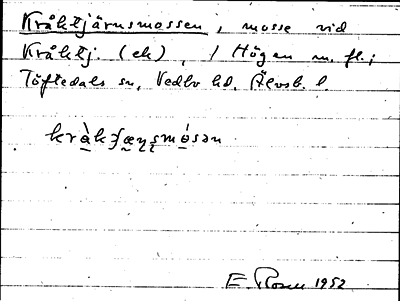 Kråktjärnsmossen, mosse vid
Kråktj. (ek), 1 Högen m. fl.;
Töftedals sn, Vedbo hd, Älvsb. l.
E. Rosen 1952